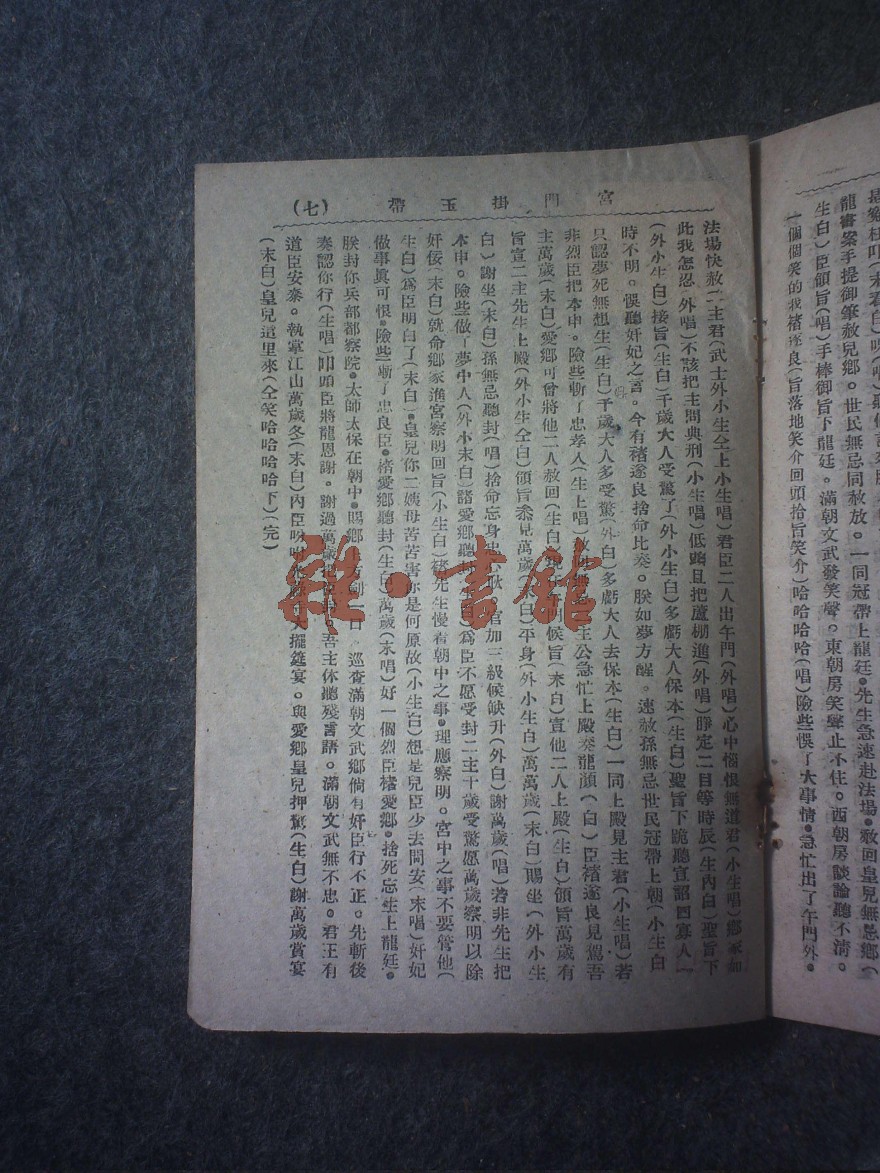 是鄉杜叩(末君白)
龍審案手提御筆赦兒鄉。世民無忌同赦放。一同冠帶上龍廷。先生急速赴法場。敕回皇兒無忌鄉(
生白)臣領旨(唱)手棒御旨下龍廷。滿朝文武發笑聲。東朝房笑聲止不住。西朝房談論聽不淸。
一個個笑的我褚遂良(旨落地笑介回頭拾旨笑介)哈哈哈哈(唱)險些悞了大事情。急忙出了午門外。
宮門掛玉帶 (七)
法場快赦二主君(武士外小生仝上小生唱)君臣二人出午門(外唱)心中惱恨無道君(小生唱)鄉家如
此我怎忍(外唱)不該把主問典刑(小生唱)低頭且把蘆棚進(外唱)睜定二目等時辰(生內白)聖旨下
(外小生白)接旨(生白)千歲大人受驚了(外小生白)多虧大人保本(生白)聖旨下跪聽宣詔曰寡人一
時不明。悞聽奸妃之言。今有褚遂良捨命比奏。朕如夢方醒。速赦孫無忌世民冠帶上朝(小生白
只認夢死無想生(生白)千歲大人多受驚(外白)多虧大人去保本(生白)一同上殿見主君(小生唱)若
非烈臣把本申。險些斬了忠孝人(生上唱)主公急忙上殿奏龍顏(白)臣褚遂良見駕吾
主萬歲(末白)愛鄉可曾將他二人赦回(生白)午門候旨(末白)宣他二人上殿(生白)領旨萬歲有
旨宣二主先生上殿(外小生仝白)領旨叅見萬歲(末白)平身(外小生白)萬萬歲(末白)賜坐(外小生
白)謝坐(末白)孫無忌聽封(唱)捨命忘身忠心耿。官加三級候缺升(外白)謝萬歲(唱)若非先生把
本申。險些做一夢中人(外小末白)諸愛鄉聽封(生白)爲臣不愿受封二主千歲受驚愿萬歲察明以除
奸佞(末白)就命鄉家進宮察明回旨(小生白)褚先生慢看朝中之事。理應察明。宮中之事不要管他(
生白)爲臣明白了(末白)皇兒你二姨母苦苦害你是何原故(小生白)想是兒臣少去問安(末唱)奸妃
做事眞可恨。險些斬了忠良臣。褚愛鄉聽封(生白)萬歲(末唱)好一個烈臣褚愛鄉。捨死忘生上龍廷。
朕封你兵部都察院。太師太保在朝中。賜鄉上方劍一口。巡查滿朝文武鄉倘有奸臣行不正。先斬後
奏認你行(生唱)叩頭臣將龍恩謝。謝過萬歲。吾主休聽殘言語。滿朝文武無不忠。君王有
道臣安泰。執掌江山萬歲冬(末白)內臣吩咐大擺筵宴。與愛鄉皇兒押驚(生白)謝萬歲賞宴
(末白)皇兒這里來(仝笑哈哈哈哈哈下)(完)
雜·書館